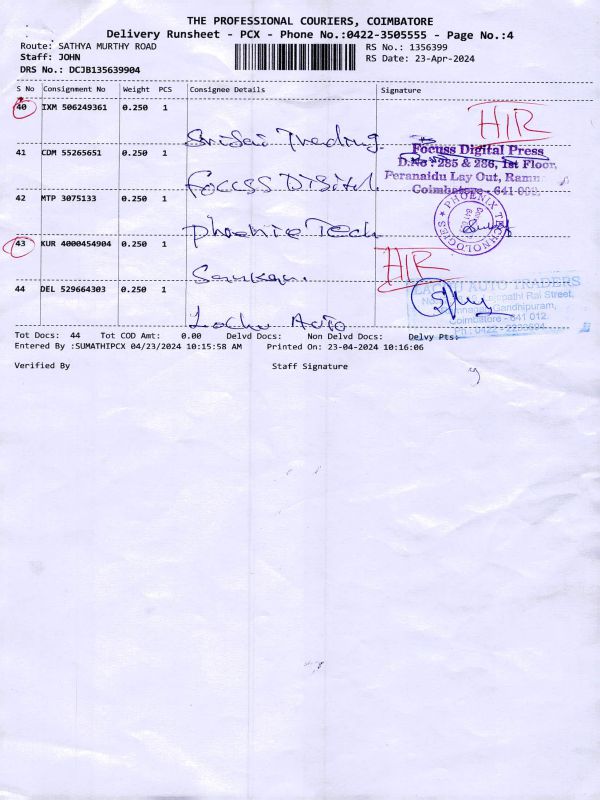 THE PROFESSIONAL COURIERS, COIMBATORE
Delivery Runsheet - PCX - Phone No.:0422-3505555 - Page No.:4
Route: SATHYA MURTHY ROAD
RS No.: 1356399
Staff: JOHN
RS Date: 23-Apr-2024
DRS No.: DCJB135639904
S No Consignment No Weight PCS Consignee Details Signature
40 IXM 506249361 0.250 1
HIR
Srisai Treding
41 CDM 55265651 0.250 1
Focuss Digital Press
D.No : 285 & 286, 1st Floor,
Focuss Digital
Peranaidu Lay Out, Ramn
Coimbatore - 641
42 MTP 3075133 0.250 1
PHOENIX TECHNOLOGIES
Phoenie Tech
43 KUR 4000454904 0.250 1
HIR
44 DEL 529664303 0.250 1
AUTO TRADERS
Rai Street,
Gandhipuram,
Coimbatore - 641 012.
Auto
Tot Docs: 44 Tot COD Amt: 0.00 Delvd Docs: Non Delvd Docs: Delvy Pts:
Entered By :SUMATHIPCX 04/23/2024 10:15:58 AM Printed On: 23-04-2024 10:16:06
Verified By Staff Signature